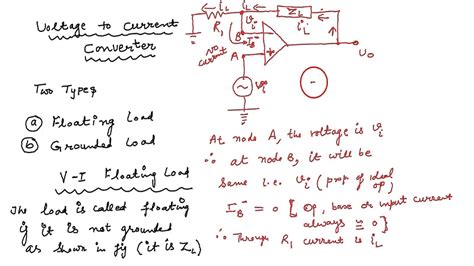 Voltage to Current
Converter
Two Types
a Floating Load
b Grounded Load
V-I Floating Load
The load is called floating
if it is not grounded
as shown in fig (it is ZL)
R1
iL
iL
ZL
iL
vi
B
IB-
No
current
A
+
-
vi
vo
-
At node A, the voltage is vi
∴ at node B, it will be
same i.e. vi (prop of ideal
op)
IB- = 0 [Op, base or input current
always ≅ 0]
∴ Through R1 current is iL